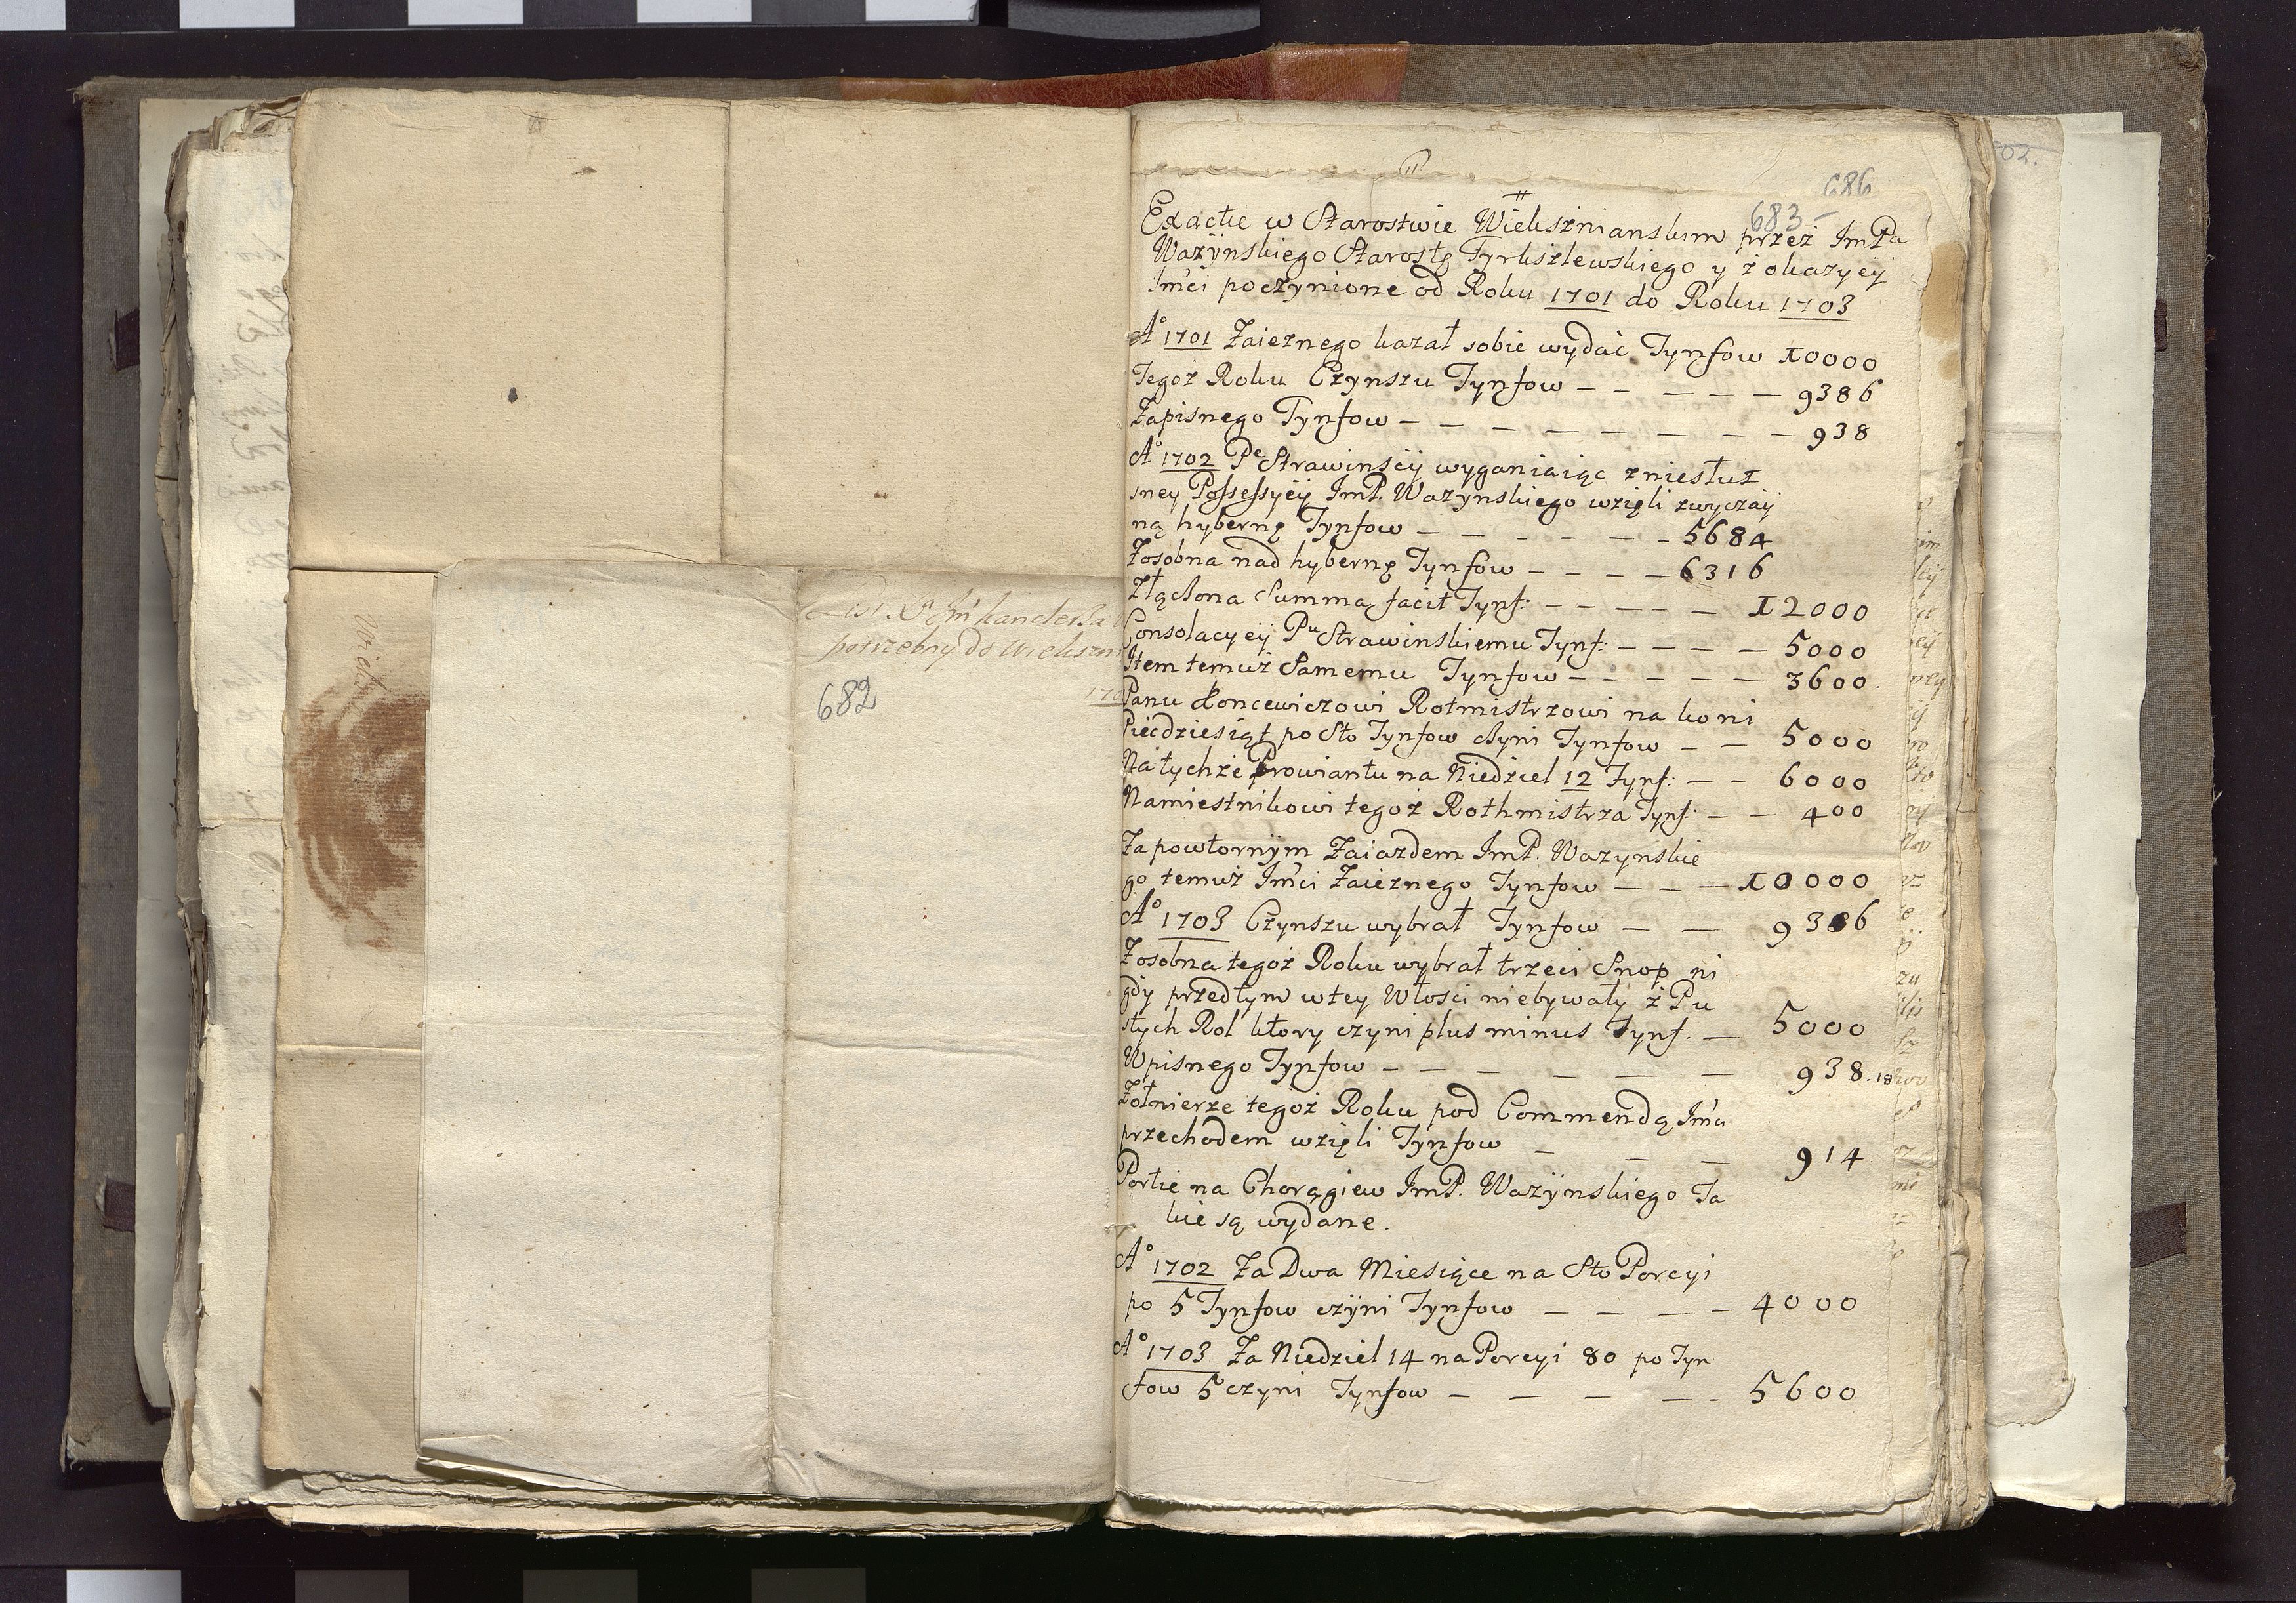 potrzebny do Wieliszn
682
170
686
683
Exactie w Starostwie Wielisznianskim przez ImPa
Ważÿnskiego Starostę Tyrkszlewskiego y z okazyeÿ
Im̃ci poczynione od Roku 1701 do Roku 1703
A° 1701 Zaieznego kazał sobie wydać Tynfow 10000
Tegoż Roku Czynszu Tynfow — — — — — 9386
Zapisnego Tynfow — — — — — — — — 938
A° 1702 Pe Strawinscÿ wyganiaiąc z niesłuż
sney Possessyeÿ ImP. Ważynskiego wzięli zwyczaÿ
ną hybernę Tynfow — — — — — — 5684
Zosobna nad hybernę Tynfow — — — — 6316
Złączona Summa facit Tynf: — — — — — 12000
Consolacyeÿ Pu Strawinskiemu Tynf: — — — — 5000
Item temuż Samemu Tynfow — — — — — 3600.
Panu Łoncewiczowi Rotmistrzowi na koni
Piećdziesiąt po Sto Tynfow czyni Tynfow — — 5000
Na tychże Prowiantu na Niedziel 12 Tynf: — — 6000
Namiestnikowi tegoż Rothmistrza Tynf: — — 400
Za powtornÿm Zaiazdem ImP. Ważynskie
go temuż Im̃ci Zaieznego Tynfow — — — 10000
A° 1703 Czynszu wybrał Tynfow — — 9386
Zosobna tegoż Roku wybrał trzeci Snop ni
gdy przedtym w tey Włosci niebywały z Pu
stych Rol ktory czyni plus minus Tynf. — 5000
Wpisnego Tynfow — — — — — — 938.18
Żołnierze tegoż Roku pod Commendą Im̃ci
przechodem wzięli Tynfow — — — 914
Portie na Chorągiew ImP. Ważÿnskiego Ta
kie są wydane.
A° 1702 Za Dwa Miesiące na Sto Porcyi
po 5 Tynfow czÿni Tynfow — — — — 4000
A° 1703 Za Niedziel 14 na Porcyi 80 po Tyn
fow 5 czyni Tynfow — — — — — 5600